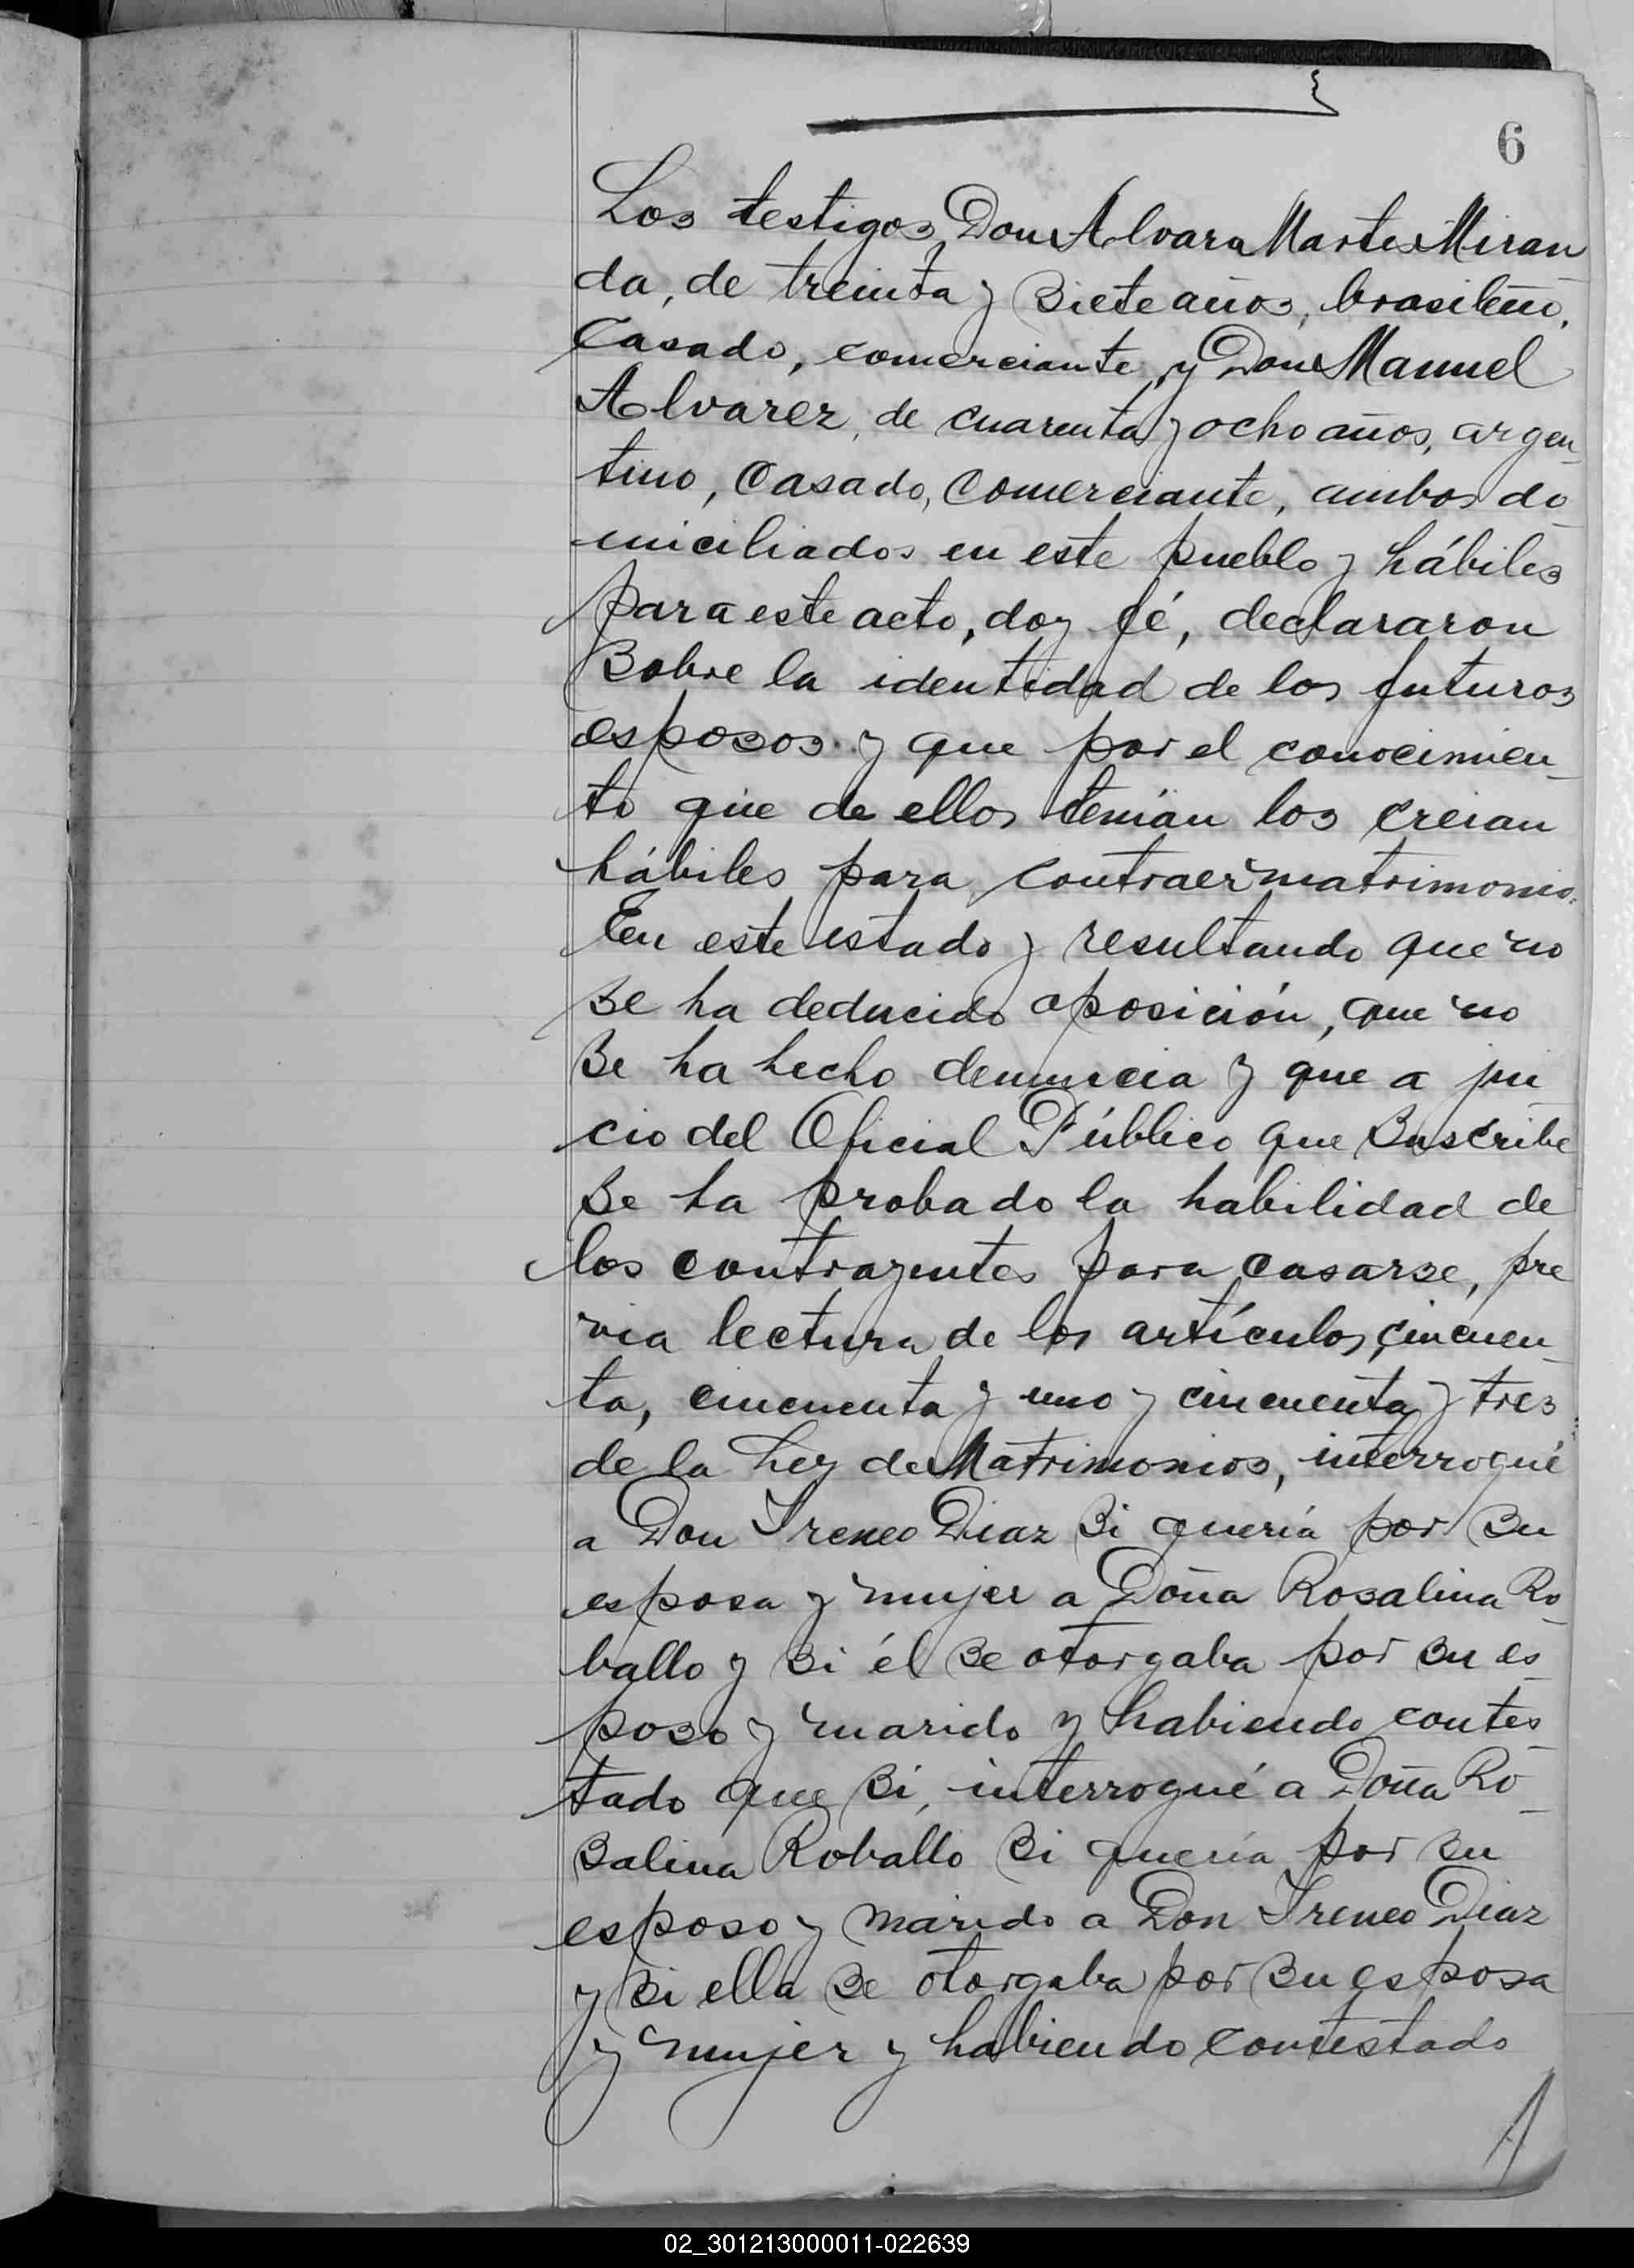 6
Los testigos Don Alvara Martes Miran
da, de treinta y siete años, brasileño,
Casado, comerciante, y Don Manuel
Alvarez, de cuarenta y ocho años, argen_
tino, Casado, Comerciante, ambos do_
miciliados en este pueblo y hábiles
para este acto, doy fé, declararon
Sobre la identidad de los futuros
esposos y que por el conocimien_
to que de ellos tenían los creian
hábiles para contraer matrimonio.
En este estado y resultando que no
se ha deducido oposición, que no
Se ha hecho denuncia y que a jui
cio del Oficial Público que Suscribe
se ha probado la habilidad de
los contrayentes para casarse, pre
via lectura de los artículos cincuen_
ta, cincuenta y uno y cincuenta y tres
de la Ley de Matrimonios, interrogué
a Don Ireneo Diaz Si quería por su
esposa y mujer a Doña Rosalina Ro_
ballo y si él se otorgaba por su es_
poso y marido y habiendo contes_
tado que si, interrogué a Doña Ro_
salina Roballo Si quería por su
esposo y marido a Don Ireneo Diaz
y si ella se otorgaba por su esposa
y mujer y habiendo contestado
02_301213000011-022639